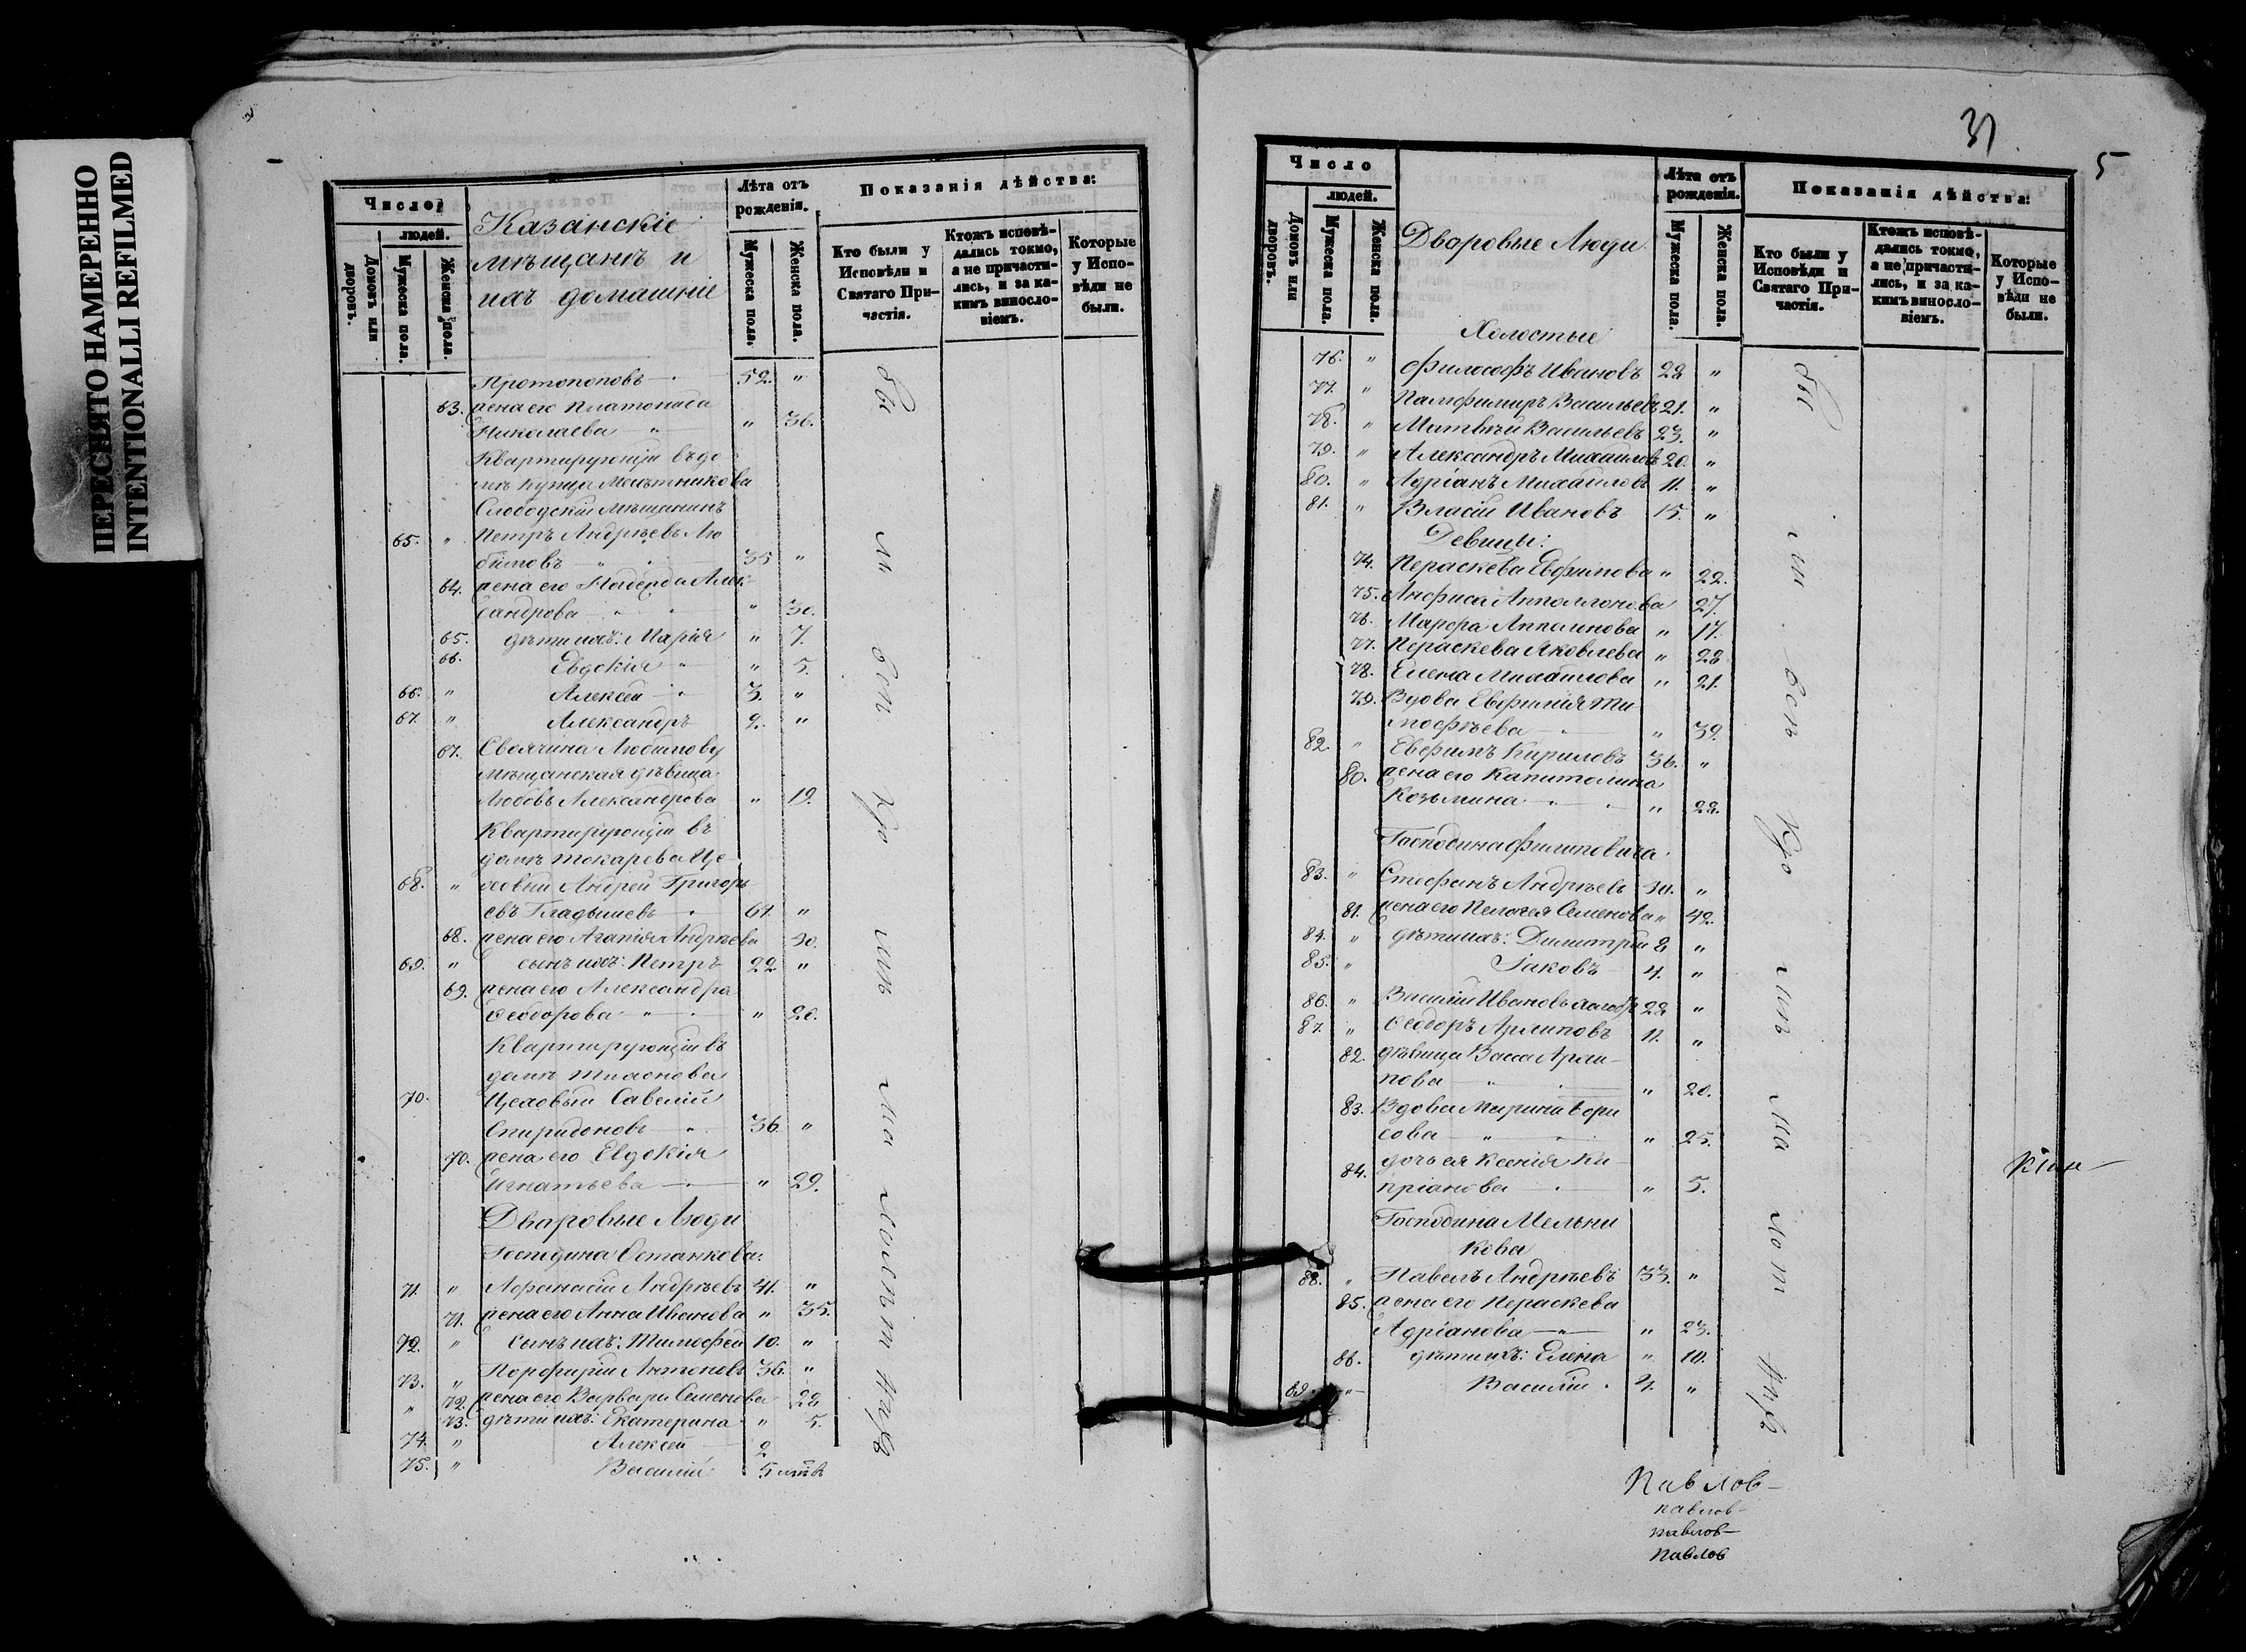 ПЕРЕСНЯТО НАМЕРЕННО
INTENTIONALLI REFILMED
Число
людей.
Домовъ или дворовъ.
Мужеска пола.
Женска пола.
Казанскіе
мѣщанъ и
ихъ домашніе
Лѣта отъ рожденія.
Мужеска пола.
Женска пола.
Показанія дѣйства:
Кто были у Исповѣди и Святаго Причастія.
Ктожъ исповѣдались токмо, а не причастились, и за какимъ винословіемъ.
Которые у Исповѣди не были.
Протопоповъ 52. "
63. жена его Платонида
Николаева " " 36.
Квартирующіи въ до
мѣ купца
Слободскій мѣщанинъ
65. " Петръ Андреевъ Лю
бимовъ " 35 "
64. жена его Надежда Алек-
сандрова " 30.
65. дѣти ихъ: Марія " 7.
66. Евдокія " 5.
66. " Алексей 3. "
67. " Александръ 2. "
67. Своячина Любимову
мѣщанская дѣвица
Любовь Александрова " 19.
Квартирующіи въ
домѣ Токарева Це-
68. " ховый Андрей Григорь
евъ Гладышевъ 61. "
68. жена его Агапія Андреева 50.
69. " сынъ ихъ: Петръ 22 "
69. жена его Александра
Ѳеодорова " " 20.
Квартирующіи въ
домѣ Тихонова
70. Цеховый Савелій
Спиридоновъ 36 "
70. жена его Евдокія
Игнатьева " 29.
Дваровые Люди
Господина Останкова:
71. " Афанасій Андреевъ 41. "
71. жена его Анна Иванова " 35.
72. " сынъ ихъ: Тимофей 10. "
73. " Порфирій Антоновъ 36. "
" 72. жена его Варвара Семенова 28
73. дѣти ихъ: Екатерина " 5.
74. " Алексей 2
75. " Василій 5
31
5
Число
людей.
Домовъ или дворовъ.
Мужеска пола.
Женска пола.
Дваровые Люди
Лѣта отъ рожденія.
Мужеска пола.
Женска пола.
Показанія дѣйства:
Кто были у Исповѣди и Святаго Причастія.
Ктожъ исповѣдались токмо, а не причастились, и за какимъ винословіемъ.
Которые у Исповѣди не были.
Холостые
76. " Философъ Ивановъ 28 "
77. " Памфимиръ Васильевъ 21. "
78. " Матвѣй Васильевъ 23. "
79. " Александръ Михаиловъ 20. "
80. " Адріанъ Михаиловъ 11. "
81. " Власій Ивановъ 15. "
Девицы:
74. Пераскева Евфимова " 22.
75. Анфиса Апполлонова 27.
76. Марфа Апполинова " 17.
77. Пераскева Яковлева " 28
78. Елена Михаилова " 21.
79. Вдова Евфимія Ти
мофѣева " 39.
82. " Евфимъ Кириловъ 36. "
80. жена его Капитолина
Козьмина " " 28.
Господина Филиповича
83. " Стефанъ Андреевъ 50. "
81. жена его Пелагея Семенова " 42.
84. " дѣти ихъ: Димитрій 8 "
85. " Іаковъ 4. "
86. " Василій Ивановъ 28 "
87. " Ѳеодоръ Архиповъ 11. "
82. дѣвица Васса Архи-
пова " " 20.
83. Вдова Марина Бори
сова " " 25.
84. дочь ея Ксенія Ки
пріанова " 5.
Господина Мельни
кова
88. " Павелъ Андреевъ 33. "
85. жена его Пераскева
Адріанова " " 23.
86. дѣти ихъ: Елена " 10.
89. " Василій 4. "
Павлов-
павлов-
павлов-
Павлов